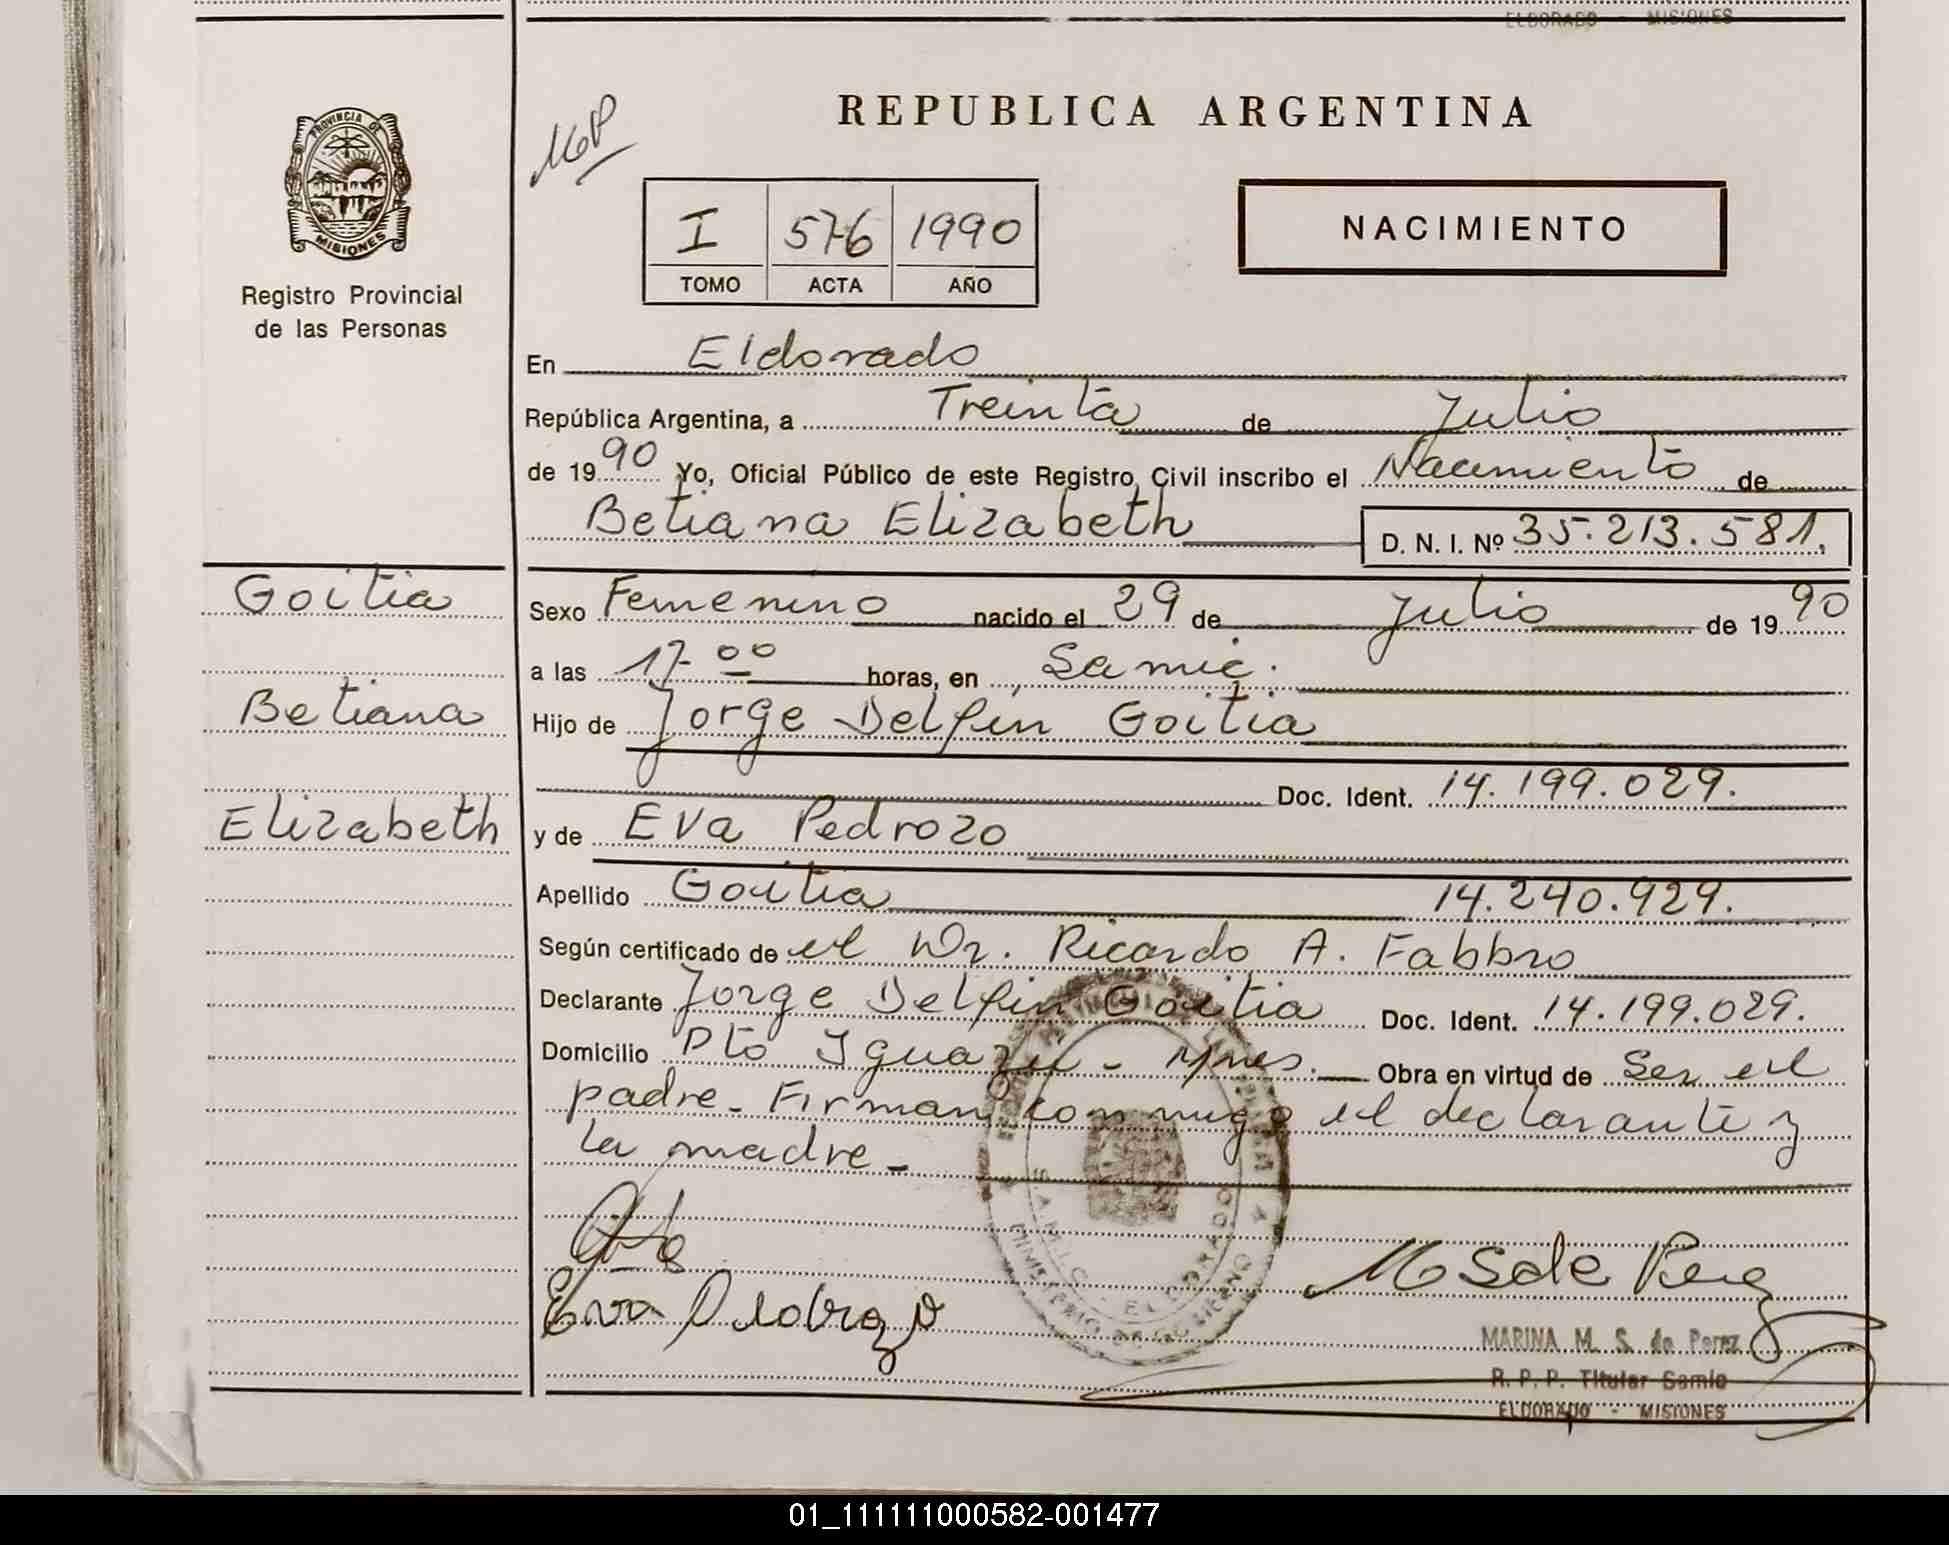 ELDORADO - MISIONES
PROVINCIA DE
MISIONES
Registro Provincial
de las Personas
REPUBLICA ARGENTINA
I 576 1990
TOMO ACTA AÑO
NACIMIENTO
En Eldorado
República Argentina, a Treinta de Julio
de 1990 Yo, Oficial Público de este Registro Civil inscribo el Nacimiento de
Betiana Elizabeth D. N. I. Nº 35.213.581.
Goitia
Betiana
Elizabeth
Sexo Femenino nacido el 29 de Julio de 1990
a las 17 00 horas, en Samic.
Hijo de Jorge Delfin Goitia
Doc. Ident. 14.199.029.
y de Eva Pedrozo
Apellido Goitia 14.240.929.
Según certificado de el Dr. Ricardo A. Fabbro
Declarante Jorge Delfin Goitia Doc. Ident. 14.199.029.
Domicilio Pto Iguazú - Mnes. Obra en virtud de Ser el
padre - Firman conmigo el declarante y
la madre -
S.A.M.I.C. ELDORADO
MINISTERIO DE GOBIERNO
Eva
M S de Perez
MARINA M. S. de Perez
R. P. P. Titular Samic
ELDORADO - MISIONES
01_111111000582-001477